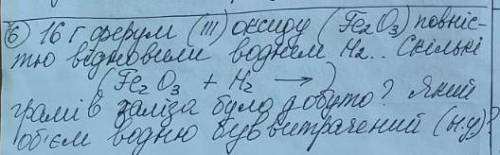 6) 16 г ферум (III) оксиду (Fe2O3) повніс-
тю відновили воднем H2.. Скільки
(Fe2O3 + H2 →)
грамів заліза було добуто? Який
об'єм водню був витрачений (н.у)?